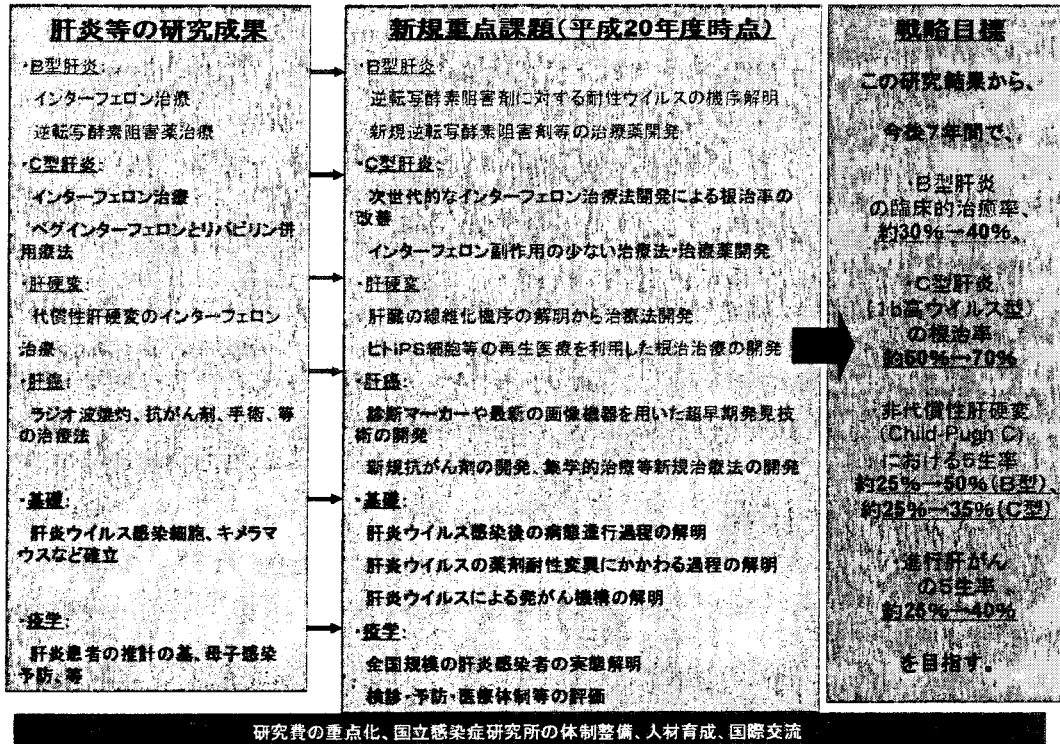 肝炎等の研究成果
・B型肝炎:
インターフェロン治療
逆転写酵素阻害薬治療
・C型肝炎:
インターフェロン治療
ペグインターフェロンとリバビリン併
用療法
・肝硬変:
代償性肝硬変のインターフェロン
治療
・肝癌:
ラジオ波焼灼、抗がん剤、手術、等
の治療法
・基礎:
肝炎ウイルス感染細胞、キメラマ
ウスなど確立
・疫学:
肝炎患者の推計の基、母子感染
予防、等
新規重点課題(平成20年度時点)
・B型肝炎:
逆転写酵素阻害剤に対する耐性ウイルスの機序解明
新規逆転写酵素阻害剤等の治療薬開発
・C型肝炎:
次世代的なインターフェロン治療法開発による根治率の
改善
インターフェロン副作用の少ない治療法・治療薬開発
・肝硬変:
肝臓の線維化機序の解明から治療法開発
ヒトiPS細胞等の再生医療を利用した根治治療の開発
・肝癌:
診断マーカーや最新の画像機器を用いた超早期発見技
術の開発
新規抗がん剤の開発、集学的治療等新規治療法の開発
・基礎:
肝炎ウイルス感染後の病態進行過程の解明
肝炎ウイルスの薬剤耐性変異にかかわる過程の解明
肝炎ウイルスによる発がん機構の解明
・疫学:
全国規模の肝炎感染者の実態解明
検診・予防・医療体制等の評価
戦略目標
この研究結果から、
今後7年間で、
・B型肝炎
の臨床的治癒率、
約30%→40%、
・C型肝炎
(1b高ウイルス型)
の根治率
約50%→70%
・非代償性肝硬変
(Child-Pugh C)
における5生率
約25%→50%(B型)、
約25%→35%(C型)
・進行肝がん
の5生率
約25%→40%
を目指す。
研究費の重点化、国立感染症研究所の体制整備、人材育成、国際交流